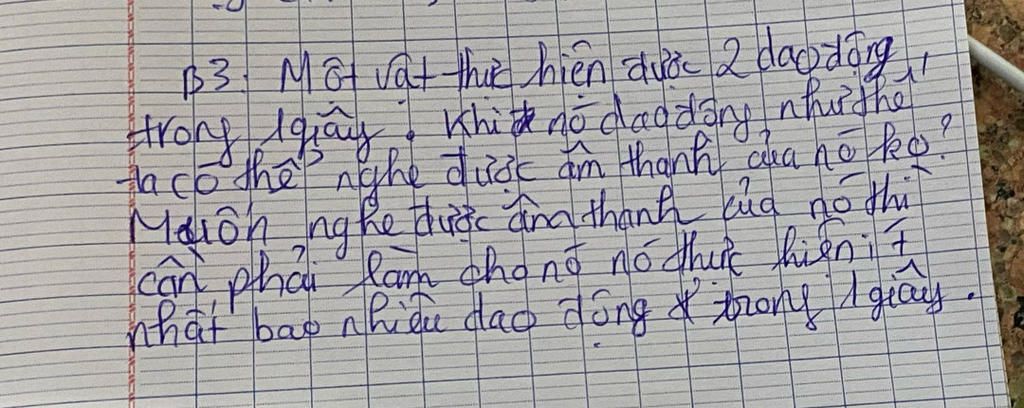 B3. Một vật thực hiện được 2 dao động
trong 1 giây. Khi nó dao động như thế
ta có thể nghe được âm thanh của nó ko?
Muốn nghe được âm thanh của nó thì
cần phải làm cho nó nó thực hiện ít
nhất bao nhiêu dao động trong 1 giây.